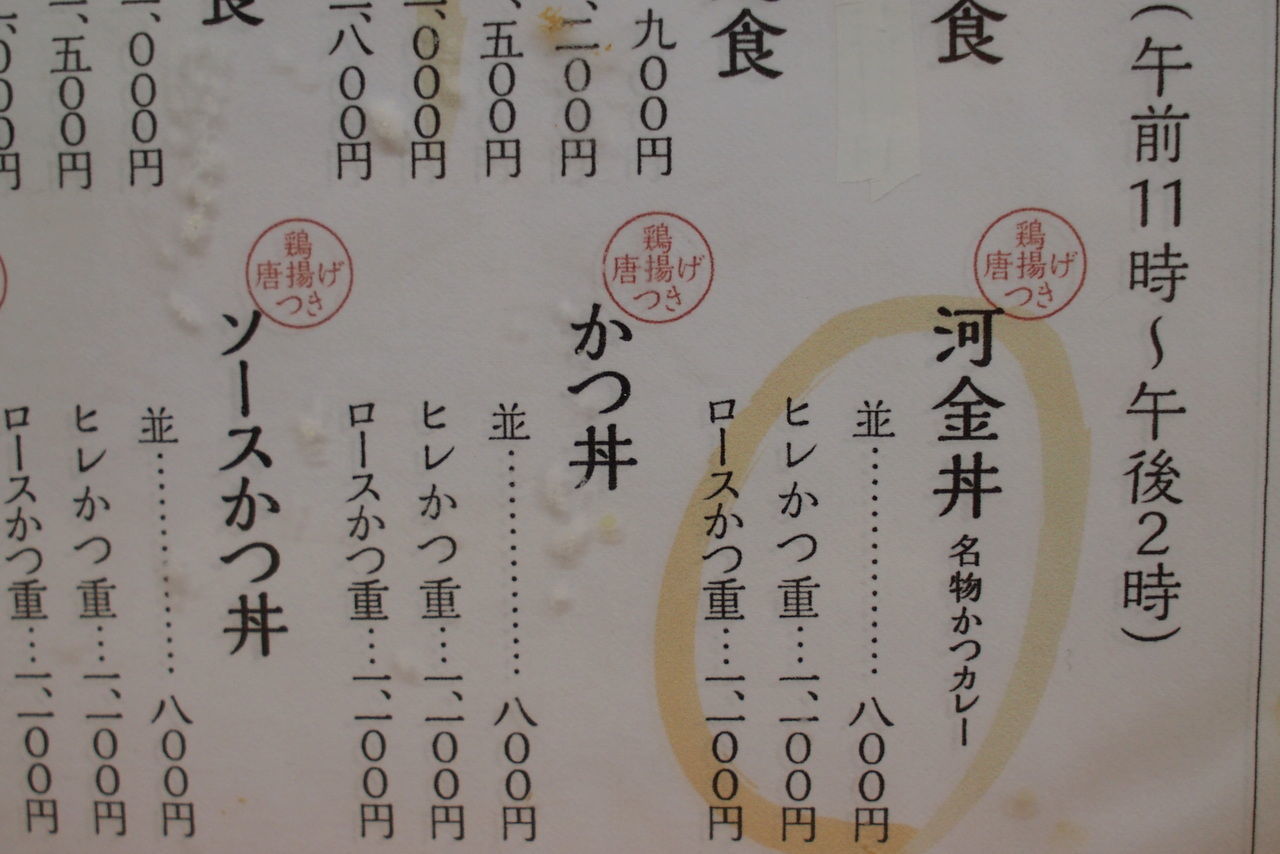 （午前11時〜午後2時）
食
鶏
唐揚げ
つき
河金丼 名物かつカレー
並…………八〇〇円
ヒレかつ重…一、一〇〇円
ロースかつ重…一、一〇〇円
食
九〇〇円
二〇〇円
五〇〇円
〇〇〇円
八〇〇円
鶏
唐揚げ
つき
かつ丼
並…………八〇〇円
ヒレかつ重…一、一〇〇円
ロースかつ重…一、一〇〇円
食
〇〇〇円
五〇〇円
〇〇〇円
鶏
唐揚げ
つき
ソースかつ丼
並…………八〇〇円
ヒレかつ重…一、一〇〇円
ロースかつ重…一、一〇〇円